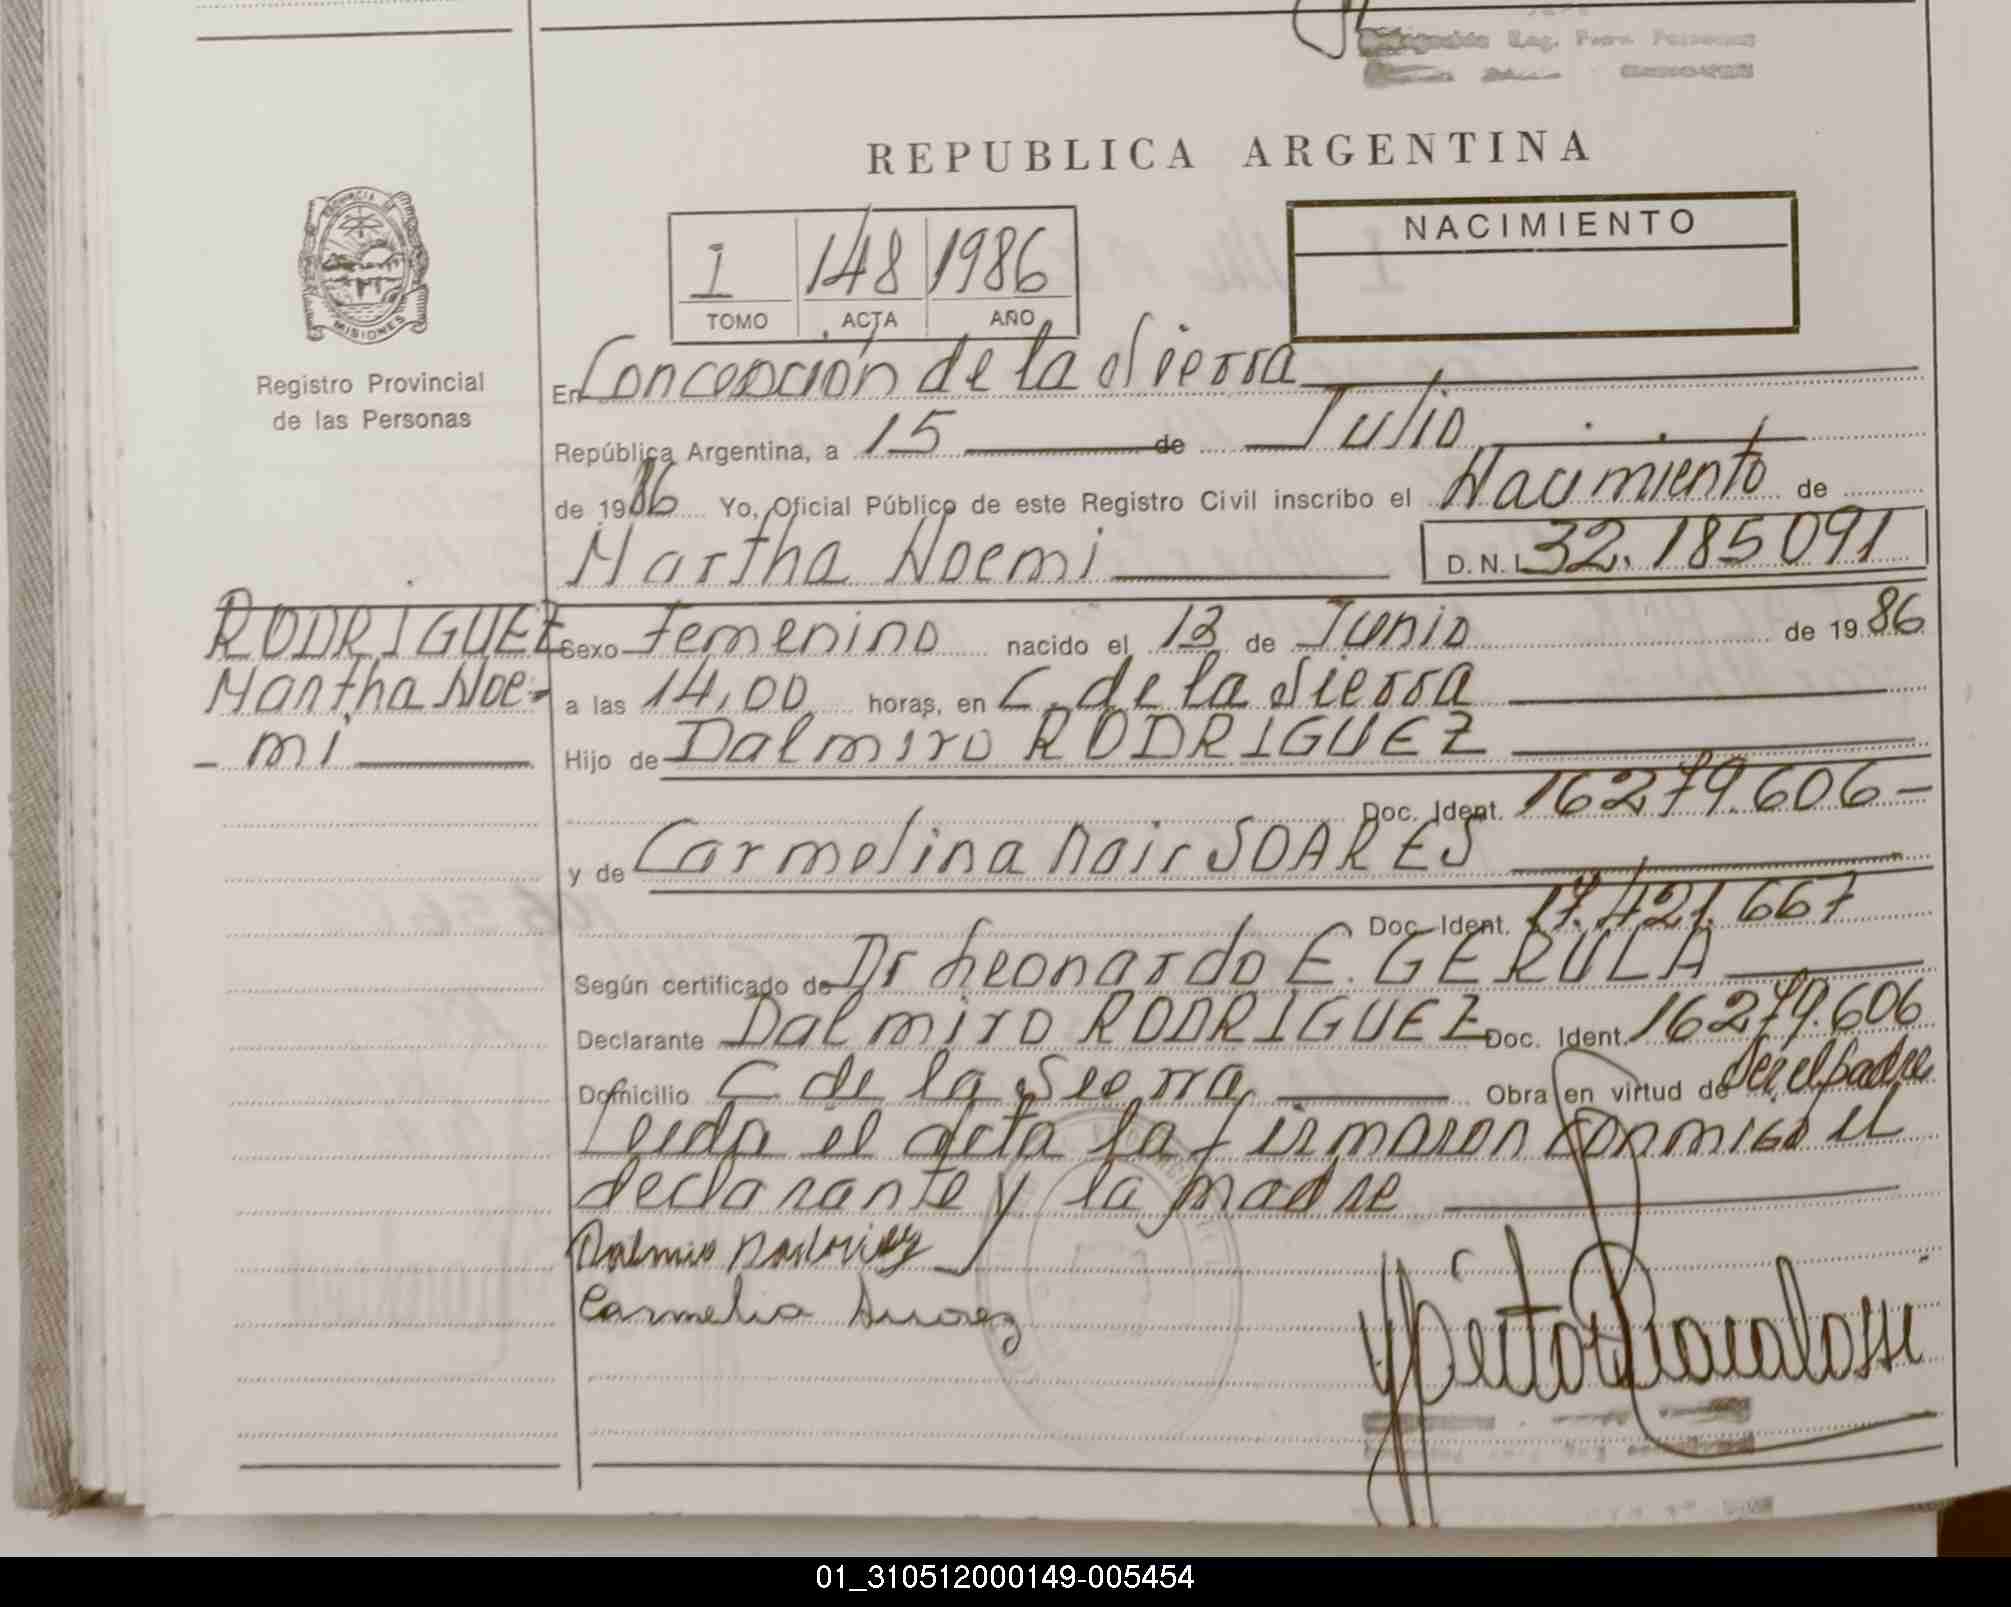 REPUBLICA ARGENTINA
PROVINCIA DE
MISIONES
Registro Provincial
de las Personas
1 148 1986
TOMO ACTA AÑO
NACIMIENTO
En Concepción de la Sierra
República Argentina, a 15 de Julio
de 1986 Yo, Oficial Público de este Registro Civil inscribo el Nacimiento de
Martha Noemi D.N.I. 32.185091
RODRIGUEZ
Martha Noe-
- mi
Sexo Femenino nacido el 13 de Junio de 1986
a las 14,00 horas, en C. de la Sierra
Hijo de Dalmiro RODRIGUEZ
Doc. Ident. 16279.606-
y de Carmelina Nair SOARES
Doc. Ident. 17.421.667
Según certificado de Dr Leonardo E. GERULA
Declarante Dalmiro RODRIGUEZ Doc. Ident. 16279.606
Domicilio C de la Sierra Obra en virtud de Ser el padre
Leida el acta la firmaron conmigo el
declarante y la madre
Dalmiro Rodriguez
Carmelia Suarez
01_310512000149-005454